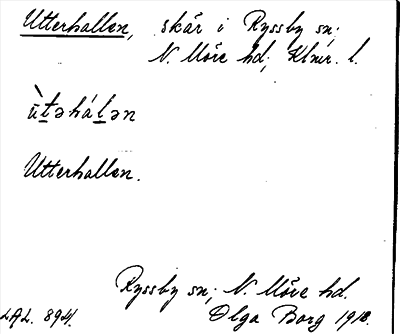 Utterhallen, skär i Ryssby sn;
N. Möre hd; Klmr. l.
ùtəhálən
Utterhallen.
Ryssby sn; N. Möre hd.
LAL. 894. Olga Borg 1918.